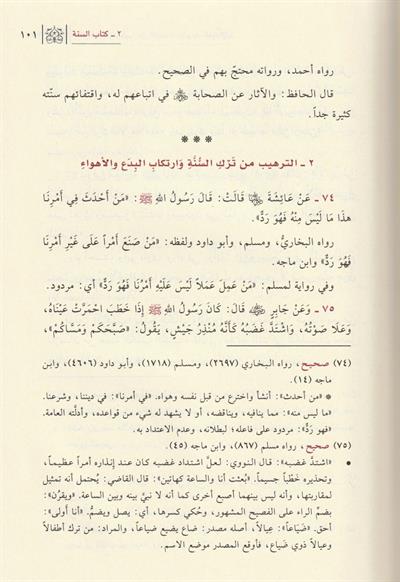 ٢ ـ كتاب السنة ١٠١
رواه أحمد، ورواته محتجّ بهم في الصحيح.
قال الحافظ: والآثار عن الصحابة ﷺ في اتباعهم له، واقتفائهم سنّته
كثيرة جداً.
* * *
٢ ـ الترهيب من تَرْكِ السُّنَّةِ وَارتكابِ البِدَعِ والأهواءِ
٧٤ ـ عَنْ عَائِشَةَ ﵂ قَالَتْ: قَالَ رَسُولُ اللهِ ﷺ: «مَنْ أَحْدَثَ فِي أَمْرِنَا
هذَا مَا لَيْسَ مِنْهُ فَهُوَ رَدٌّ».
رواه البخاريُّ، ومسلم، وأبو داود ولفظه: «مَنْ صَنَعَ أَمْراً عَلَى غَيْرِ أَمْرِنَا
فَهُوَ رَدٌّ» وابن ماجه.
وفي رواية لمسلم: «مَنْ عَمِلَ عَمَلاً لَيْسَ عَلَيْهِ أَمْرُنَا فَهُوَ رَدٌّ» أي: مردود.
٧٥ ـ وَعَنْ جَابِرٍ ﵁ قَالَ: كَانَ رَسُولُ اللهِ ﷺ إِذَا خَطَبَ احْمَرَّتْ عَيْنَاهُ،
وَعَلَا صَوْتُهُ، وَاشْتَدَّ غَضَبُهُ كَأَنَّهُ مُنْذِرُ جَيْشٍ، يَقُولُ: «صَبَّحَكُمْ وَمَسَّاكُمْ»،
(٧٤) صحيح، رواه البخاري (٢٦٩٧)، ومسلم (١٧١٨)، وأبو داود (٤٦٠٦)، وابن
ماجه (١٤).
* «من أحدث»: أنشأ واخترع من قبل نفسه وهواه. «في أمرنا»: في ديننا، وشرعنا.
«ما ليس منه»: مما ينافيه، ويناقضه، أو لا يشهد له شيء من قواعده، وأدلَّته العامة.
«فهو ردٌّ»: مردود على فاعله؛ لبطلانه، وعدم الاعتداد به.
(٧٥) صحيح، رواه مسلم (٨٦٧)، وابن ماجه (٤٥).
• «اشتدَّ غضبه»: قال النووي: لعلَّ اشتداد غضبه كان عند إنذاره أمراً عظيماً،
وتحذيره خَطْباً جسيماً. «بُعثت أنا والساعة كهاتين»: قال القاضي: يُحتمل أنه تمثيل
لمقاربتها، وأنه ليس بينهما أصبع أخرى كما أنه لا نبيَّ بينه وبين الساعة. «ويقرُن»:
بضمِّ الراء على الفصيح المشهور، وحُكي كسرها، أي: يصل ويضمُّ. «أنا أولى»:
أحق. «ضَيَاعاً»: عِيالاً، أصله مصدر: ضاع يضيع ضياعاً، والمراد: من ترك أطفالاً
وعيالاً ذوي ضَياع، فأوقع المصدر موضع الاسم.